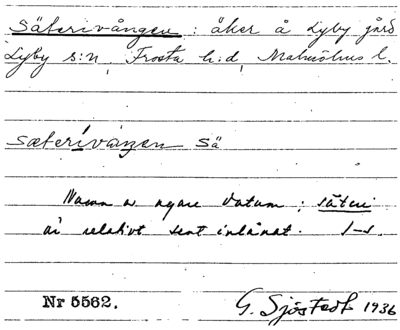 Säterivången : åker å Lyby gård
Lyby s:n, Frosta h:d, Malmöhus l.
sæterívaŋen sä
Namn av yngre datum; säteri
är relativt sent inlånat.
Nr 5562.
G. Sjöstedt 1936